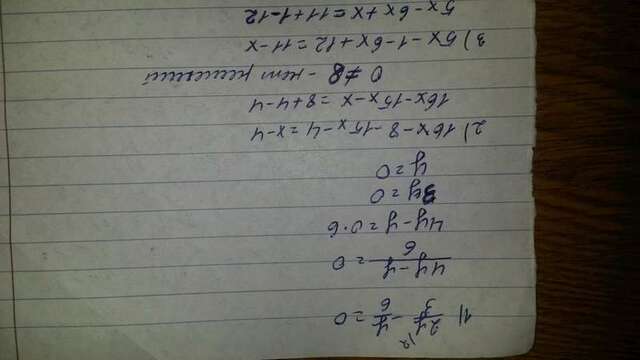 1) 2y/3 \2 - y/6 = 0
4y-y/6 = 0
4y-y=0·6
3y=0
y=0
2) 16x-8-15x-4=x-4
16x-15x-x=8+4-4
0≠8 - нет решений
3) 5x-1-6x+12=11-x
5x-6x+x=11+1-12